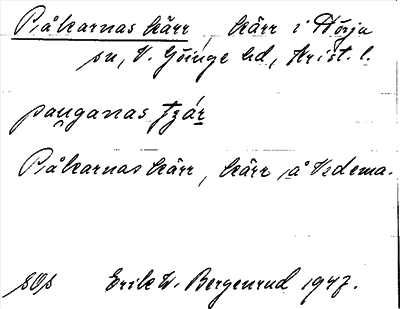 Piåkarnas kärr, kärr i Hörja
sn, V. Göinge hd, Krist. l.
pau̯ganas tzár
Piåkarnas kärr, kärr å Vedema.
SOs Erik W. Bergenrud 1947.